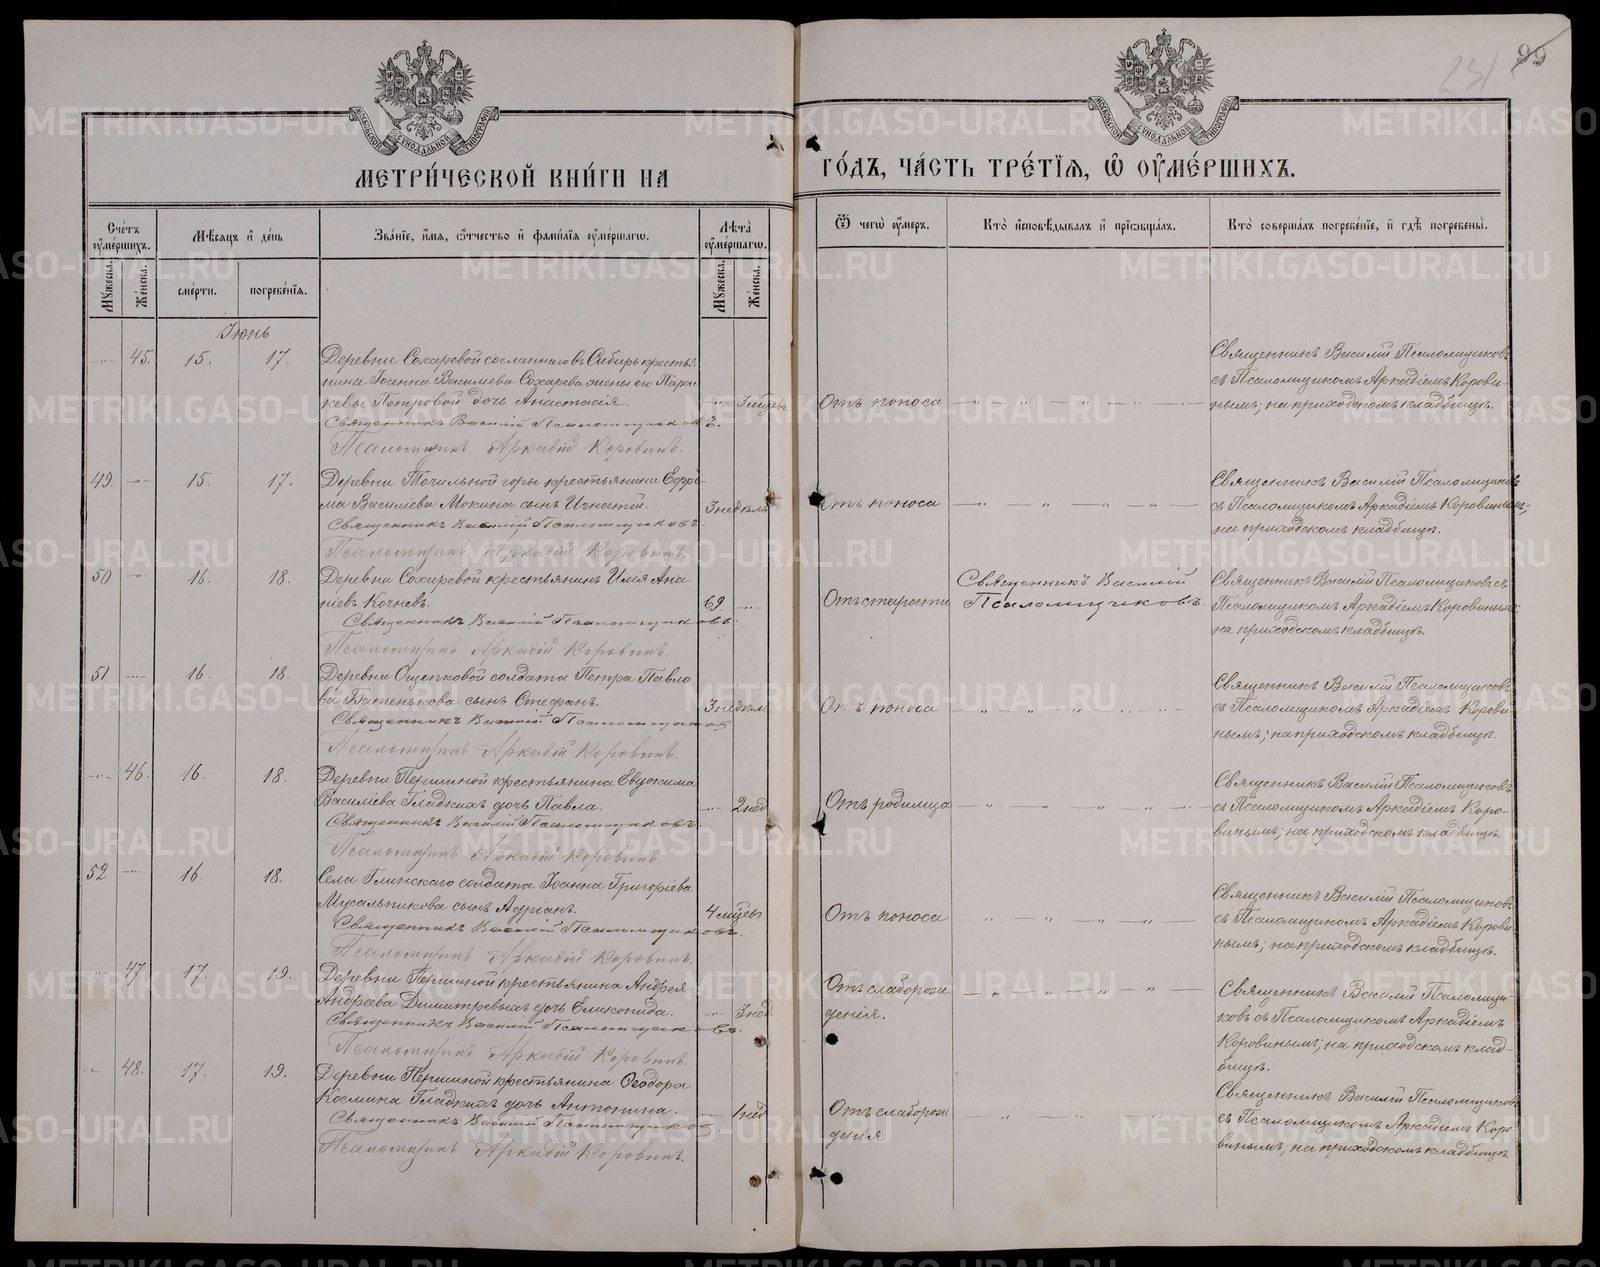 231
99
МОСКОВСКОЙ СѴНОДАЛЬНОЙ ТИПОГРАФІИ
МОСКОВСКОЙ СѴНОДАЛЬНОЙ ТИПОГРАФІИ
МЕТРИ́ЧЕСКОЙ КНИ́ГИ НА
ГО́ДЪ, ЧА́СТЬ ТРЕ́ТІЯ, Ѡ ОУ҆МЕ́РШИХЪ.
Сче́тъ оу҆ме́ршихъ.
Мѣ́сяцъ и҆ де́нь
Зва́нїе, и҆́мя, ѻ҆́тчество и҆ фами́лїя оу҆ме́ршагѡ.
Лѣта̀ оу҆ме́ршагѡ.
Ѿ чегѡ̀ оу҆́меръ.
Кто̀ и҆сповѣ́дывалъ и҆ прїѡбща́лъ.
Кто̀ соверша́лъ погребе́нїе, и҆ гдѣ̀ погребены̀.
Му́жеска.
Же́нска.
сме́рти.
погребе́нїя.
Му́жеска.
Же́нска.
Іюнь
45. 15. 17. Деревни Сохаревой сосланнаго въ Сибирь крестья-
нина Іоанна Василіева Сохарева жены его Пара-
кевы Петровой дочь Анастасія. 3 мѣсяц. Отъ поноса
Священникъ Василій Псаломщиковъ.
Псаломщикъ Аркадій Коровинъ.
Священникъ Василій Псаломщиковъ
съ Псаломщикомъ Аркадіемъ Корови-
нымъ; на приходскомъ кладбищѣ.
49. 15. 17. Деревни Точильной горы крестьянина Ефре-
ма Василіева Мокина сынъ Игнатій. 3 недѣль Отъ поноса
Священникъ Василій Псаломщиковъ.
Псаломщикъ Аркадій Коровинъ.
Священникъ Василій Псаломщиковъ
съ Псаломщикомъ Аркадіемъ Коровинымъ;
на приходскомъ кладбищѣ.
50 16. 18. Деревни Сохаревой крестьянинъ Илія Ана-
ніевъ Кочневъ. 69. Отъ старости
Священникъ Василій Псаломщиковъ.
Псаломщикъ Аркадій Коровинъ.
Священникъ Василій
Псаломщиковъ.
Священникъ Василій Псаломщиковъ съ
Псаломщикомъ Аркадіемъ Коровинымъ;
на приходскомъ кладбищѣ.
51 16. 18. Деревни Ощепковой солдата Петра Павло
ва Батенькова сынъ Стефанъ. 3 недѣль Отъ поноса
Священникъ Василій Псаломщиковъ
Псаломщикъ Аркадій Коровинъ.
Священникъ Василій Псаломщиковъ
съ Псаломщикомъ Аркадіемъ Корови-
нымъ; на приходскомъ кладбищѣ.
46. 16. 18. Деревни Першиной крестьянина Евдокима
Василіева Гладкихъ дочь Павла. 2 нед. Отъ родимца
Священникъ Василій Псаломщиковъ.
Псаломщикъ Аркадій Коровинъ.
Священникъ Василій Псаломщиковъ
съ Псаломщикомъ Аркадіемъ Коро-
винымъ; на приходскомъ кладбищѣ.
52 16. 18. Села Глинскаго солдата Іоанна Григоріева
Мусальникова сынъ Адріанъ. 4 мѣсяц. Отъ поноса
Священникъ Василій Псаломщиковъ.
Псаломщикъ Аркадій Коровинъ.
Священникъ Василій Псаломщиковъ
съ Псаломщикомъ Аркадіемъ Корови-
нымъ; на приходскомъ кладбищѣ.
47 17. 19. Деревни Першиной крестьянина Андрея
Андреева Димитревыхъ дочь Еликонида. 3 нед.
Священникъ Василій Псаломщиковъ.
Псаломщикъ Аркадій Коровинъ.
Отъ слаборож
денія.
Священникъ Василій Псаломщи-
ковъ съ Псаломщикомъ Аркадіемъ
Коровинымъ; на приходскомъ клад-
бищѣ.
48. 17. 19. Деревни Першиной крестьянина Ѳеодора
Космина Гладкихъ дочь Антонина. 1 нед
Священникъ Василій Псаломщиков
Псаломщикъ Аркадій Коровинъ.
Отъ слаборож
денія
Священникъ Василій Псаломщиковъ
съ Псаломщикомъ Аркадіемъ Коро-
винымъ, на приходскомъ кладбищѣ.
METRIKI.GASO-URAL.RU